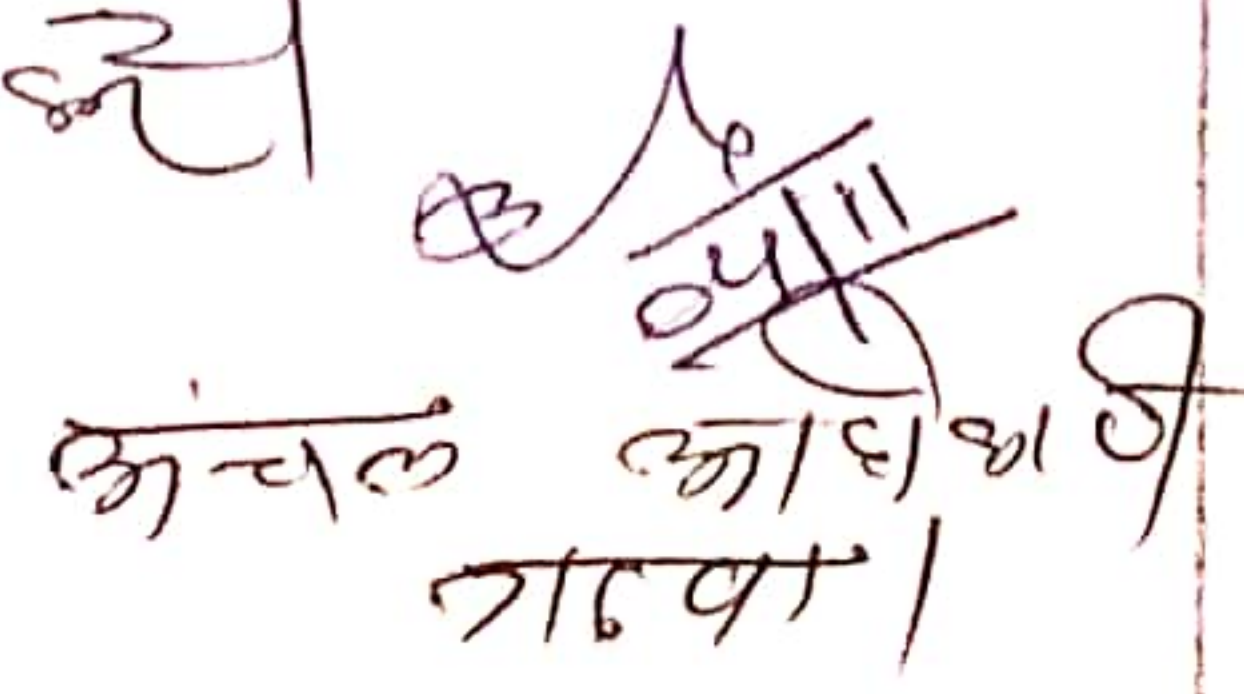 04/11
अंचल अधिकारी
गढवा।